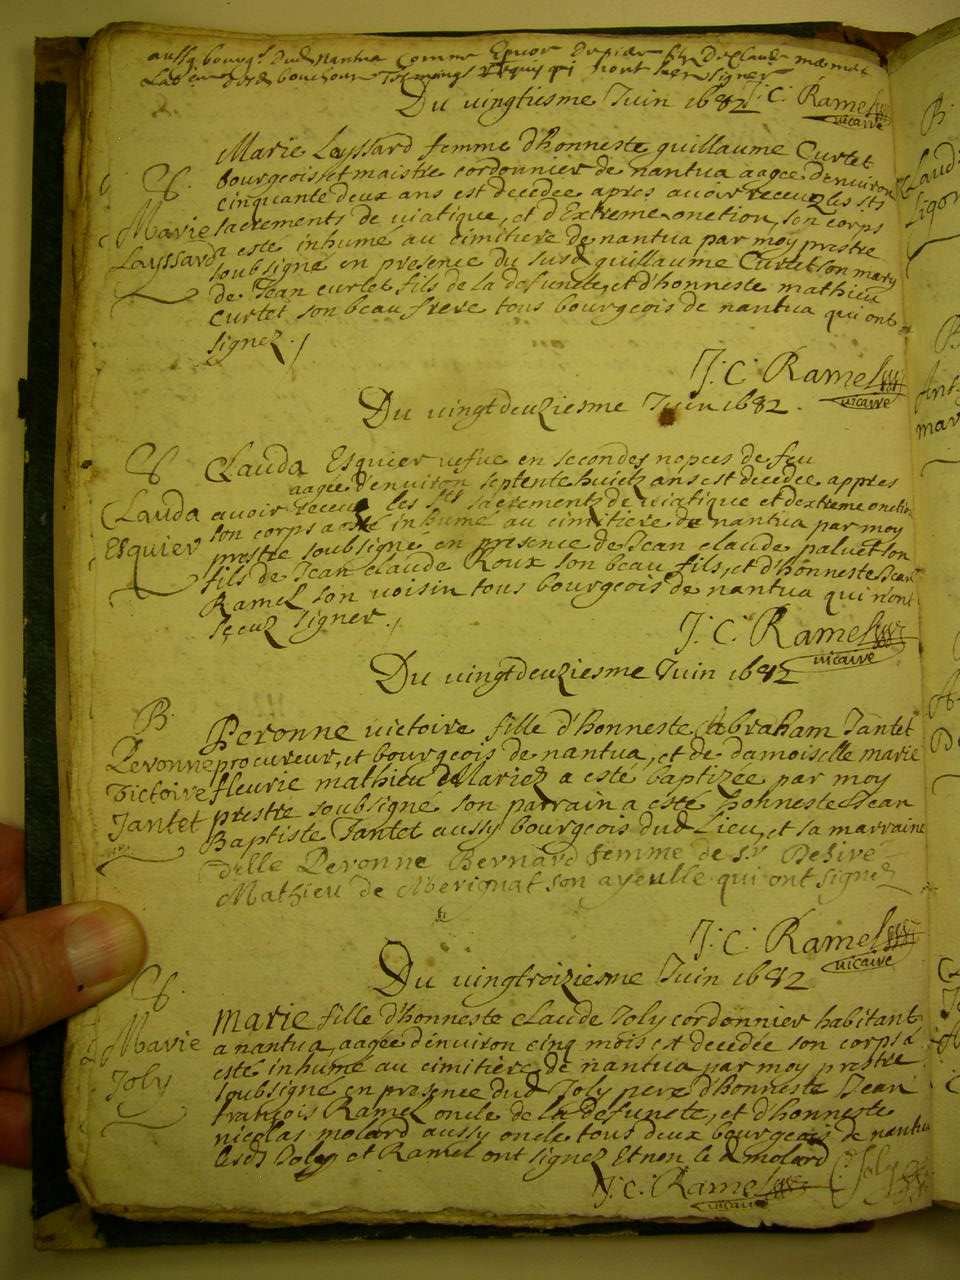 aussy bourg. dud nantua comme
Du vingtiesme Juin 1682 J. C. Ramel
vicaire
Marie Layssard femme d'honneste guillaume Curtet
bourgeois, et maistre cordonnier de nantua aagee denviron
cinquante deux ans est decedée apres avoir receuz les sts
sacrements de viatique, et d'Extreme onction, son corps
a este inhumé au cimitiere de nantua par moy prestre
soubsigné en presence du susd guillaume Curtet son mary
de Jean curtet fils de la defuncte, et d'honneste mathieu
Curtet son beau frere tous bourgeois de nantua qui ont
signez
Marie
Layssard
J. C. Ramel
vicaire
Du vingtdeuziesme Juin 1682.
Clauda Esquier vefve en secondes nopces de feu
aagée d'environ septente huict ans est decedée appres
avoir receuz les sts sacrements de viatique et dextreme onction
son corps a esté inhumé au cimitiere de nantua par moy
prestre soubsigné en presence de Jean claude paluet son
fils de Jean claude Roux son beau fils, et d'honneste Jean
Ramel son voisin tous bourgeois de nantua qui n'ont
sceuz signer.
Clauda
Esquier
J. C. Ramel
vicaire
Du vingtdeuziesme Juin 1682
B.
Peronne
Victoire
Jantet
Peronne victoire fille d'honneste Abraham Jantet
procureur, et bourgeois de nantua, et de damoiselle marie
fleurie mathieu a esté baptizée par moy
prestre soubsigné son parrain a esté honneste Jean
Baptiste Jantet aussy bourgeois dud Lieu, et sa marraine
delle Peronne Bernard femme de sr Desiré
Mathieu de son ayeulle qui ont signez
J. C. Ramel
vicaire
Du vingtroiziesme Juin 1682
Marie
Joly
Marie fille d'honneste claude Joly cordonnier habitant
a nantua, aagée d'environ cinq mois est decedée son corps a
esté inhumé au cimitiere de nantua par moy prestre
soubsigné en presence dud Joly pere d'honneste Jean
françois Ramel oncle de la defuncte, et d'honneste
nicolas molard aussy oncle tous deux bourgeois de nantua
lesd Joly et Ramel ont signez Et non le d molard
J. C. Ramel
vicaire
C. Joly